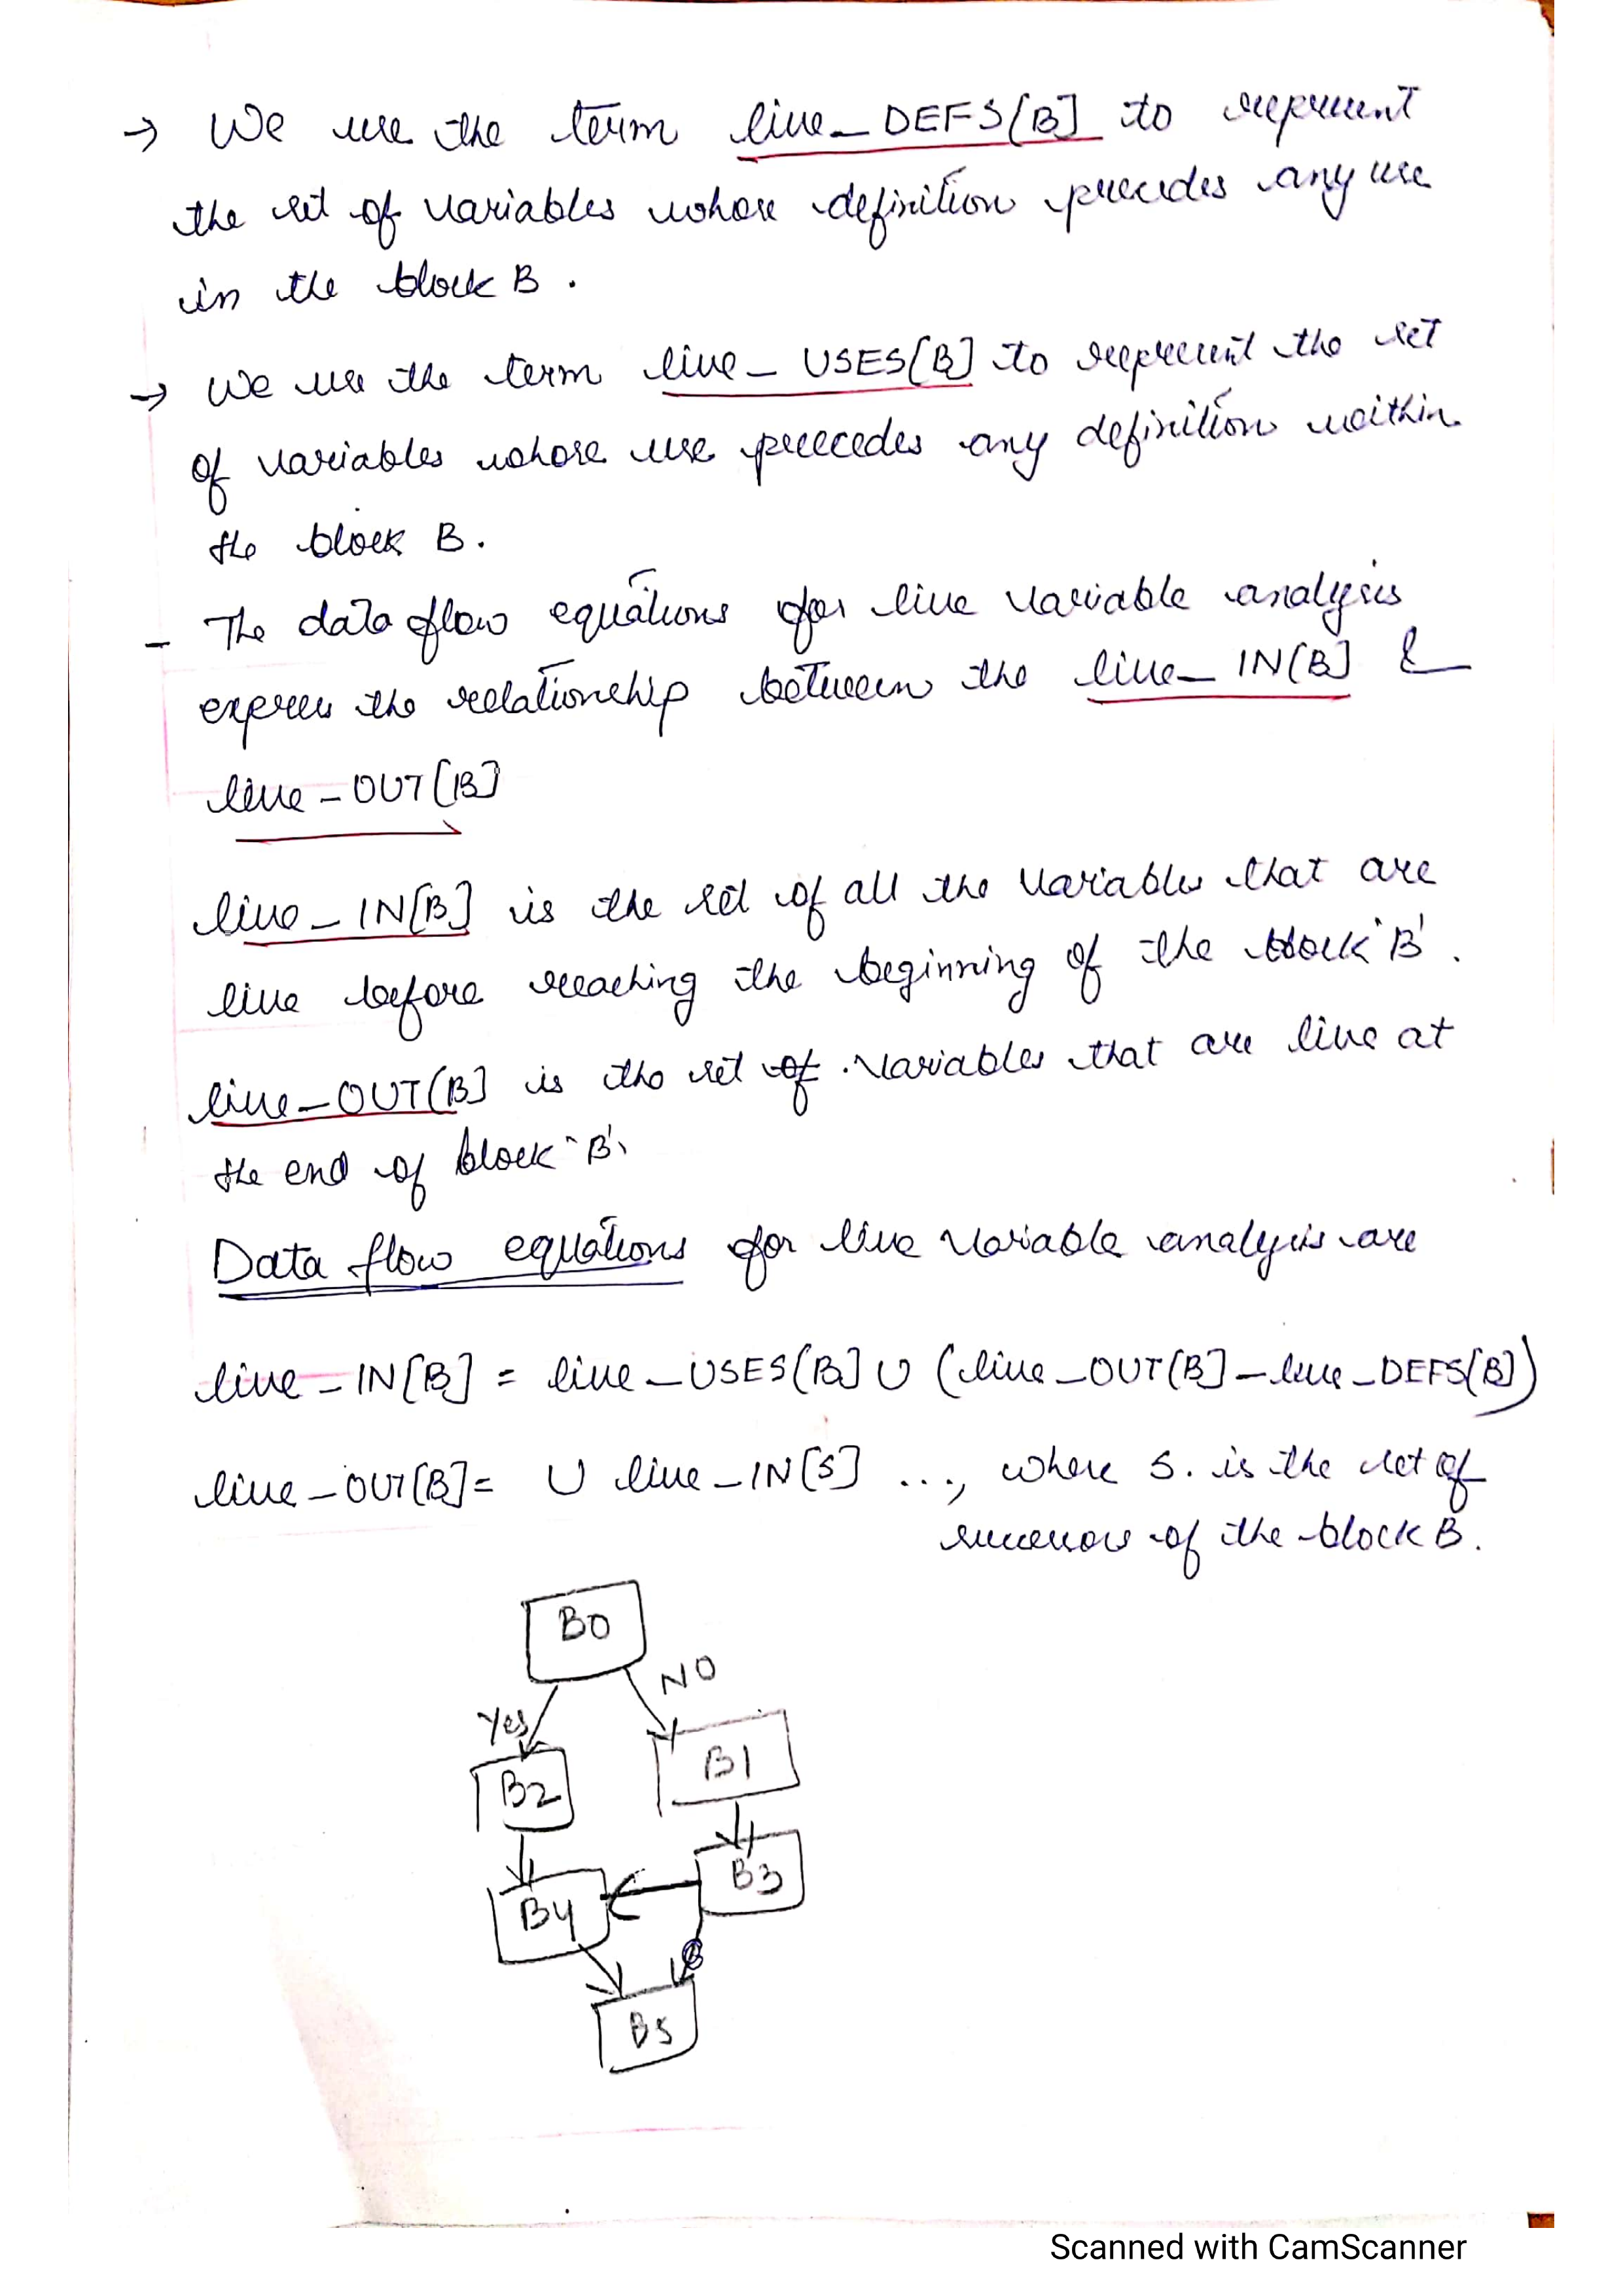 → We use the term live_DEFS[B] to represent
the set of variables whose definition precedes any use
in the block B.
→ We use the term live_USES[B] to represent the set
of variables whose use precedes any definition within
the block B.
- The data flow equations for live variable analysis
express the relationship between the live_IN[B] &
live_OUT[B]
live_IN[B] is the set of all the variables that are
live before reaching the beginning of the block 'B'.
live_OUT[B] is the set of variables that are live at
the end of block 'B'.
Data flow equations for live variable analysis are
live_IN[B] = live_USES[B] ∪ (live_OUT[B] - live_DEFS[B])
live_OUT[B] = ∪ live_IN[S] ..., where S. is the set of
successors of the block B.
B0
NO
Yes
B1
B2
B3
B4
B5
Scanned with CamScanner